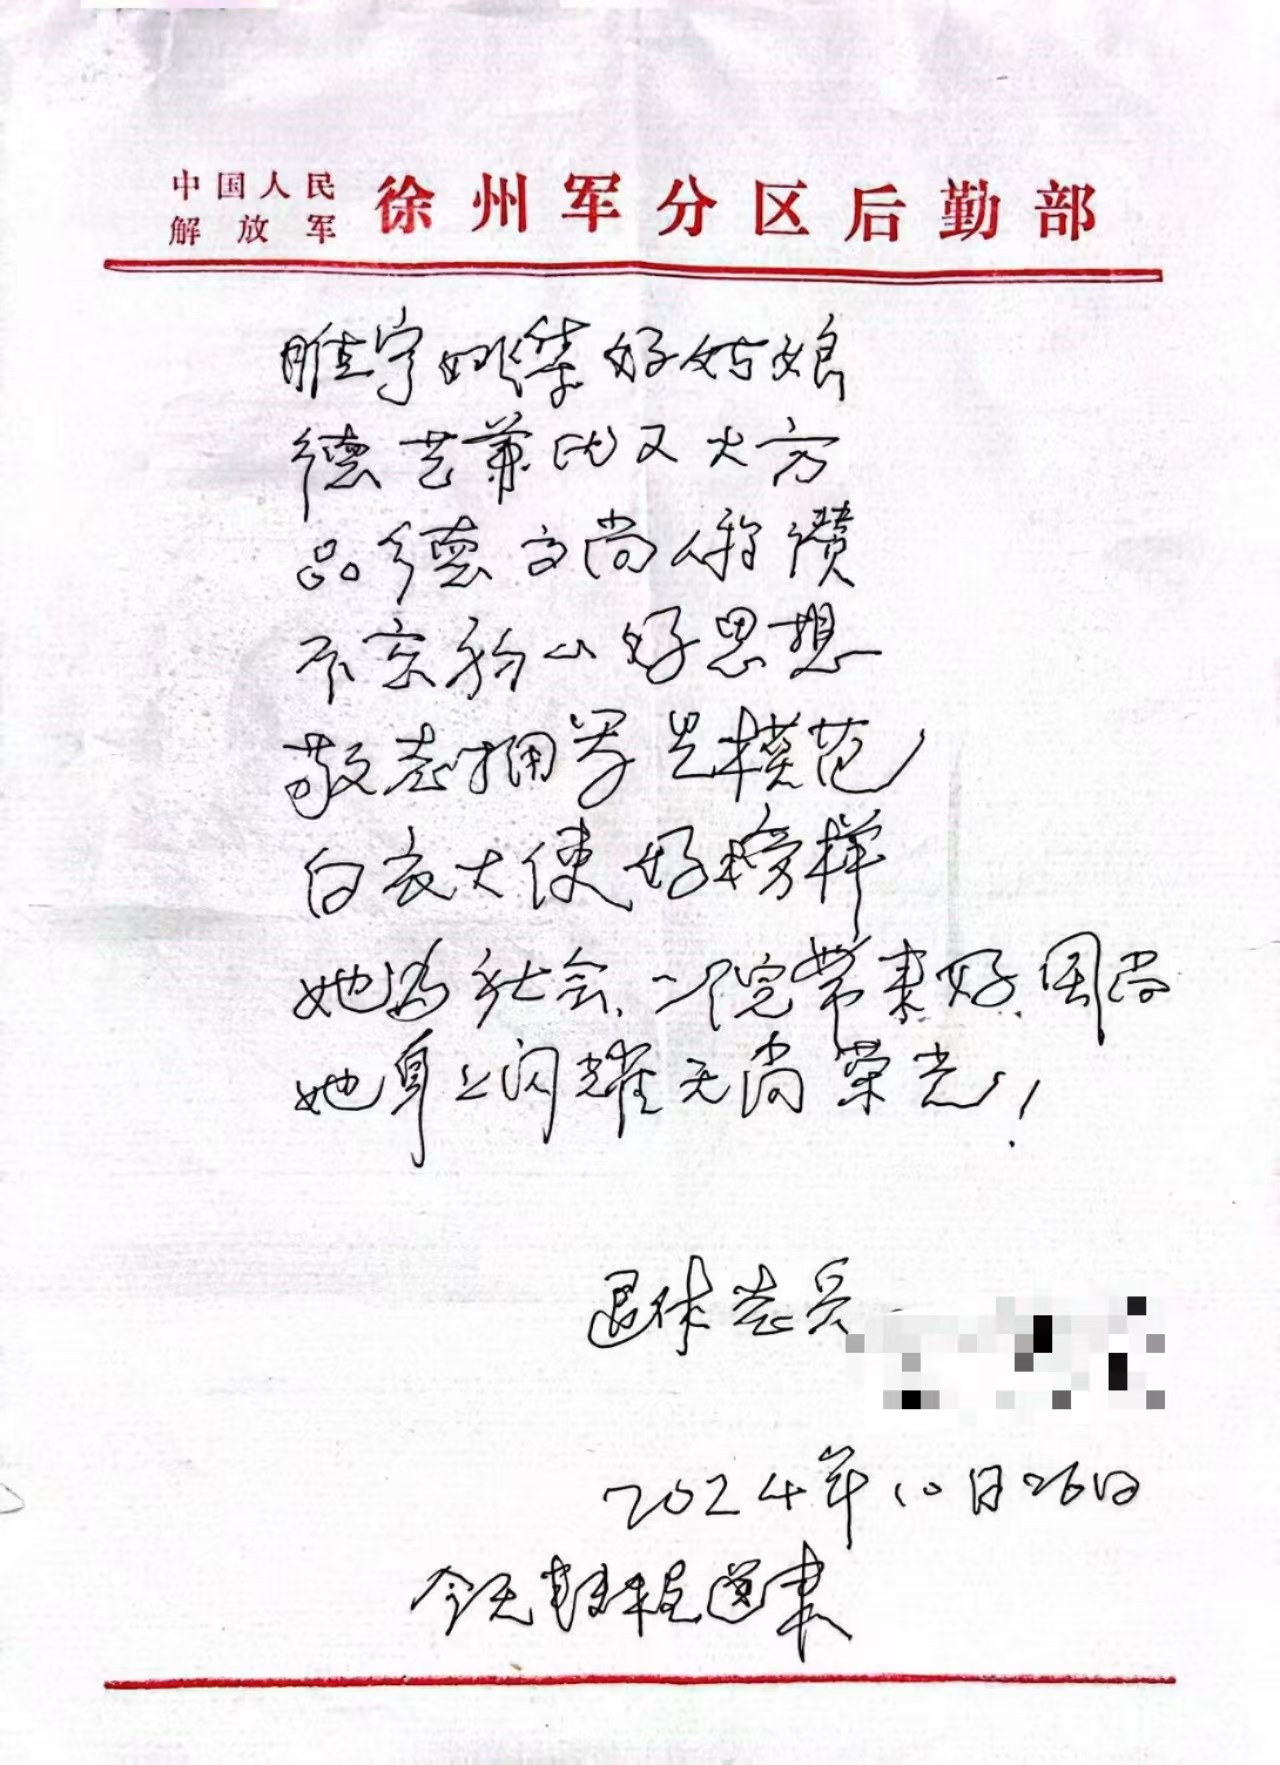 中国人民解放军 徐州军分区后勤部
好姑娘
德艺兼比又大方
品德高尚人称讚
不忘初心好思想
敬老拥军是模范
白衣天使好榜样
她为社会、院带来好风尚
她身上闪耀无尚荣光！
退休老兵
2024年10月26日
今天送来